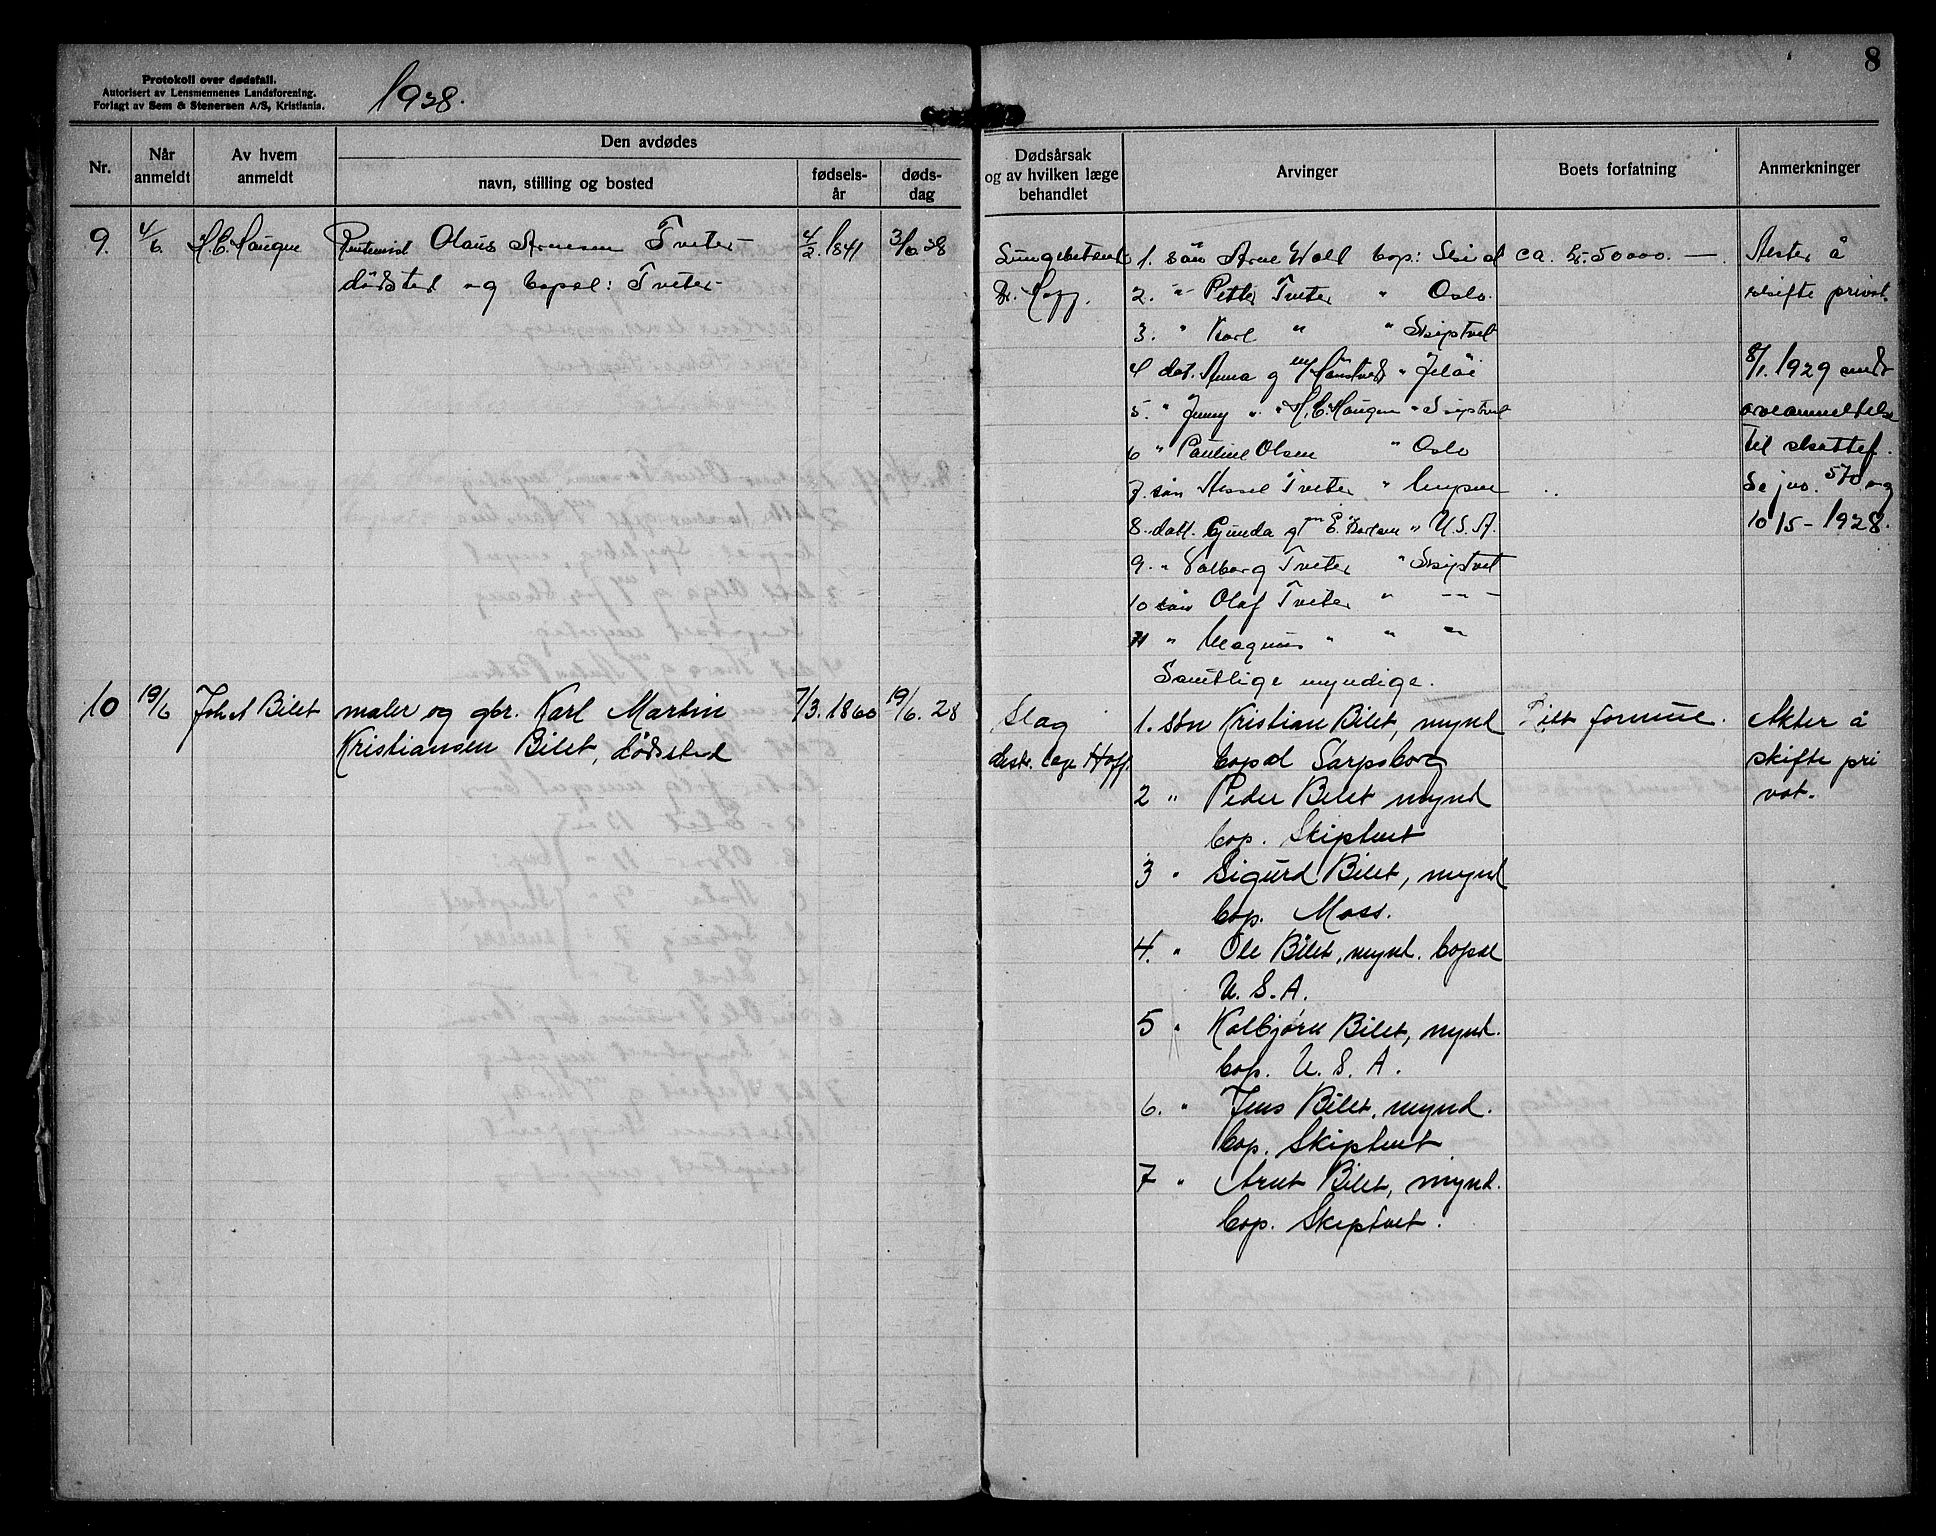 Protokoll over dødsfall.
Autorisert av Lensmennenes Landsforening.
Forlagt av Sem & Stenersen A/S, Kristiania.
1928.
8
Nr.
Når anmeldt
Av hvem anmeldt
Den avdødes
navn, stilling og bosted
fødsels-
år
døds-
dag
Dødsårsak
og av hvilken læge
behandlet
Arvinger
Boets forfatning
Anmerkninger
9. 4/6. H.E. Haugen Olaus Arnesen Tveter 4/2. 1841 3/6. 28
dødsted og bopæl: Tveter
Lungebetend
Dr. Hoff.
1. søn Arne Woll bop: Ski
2. " Petter Tveter " Oslo.
3. " Karl " " Skiptvet
4 dat. Anna g m/ " Jeløi
5. " Jenny " " H.E. Haugen " Skiptvet
6 " Pauline Olsen " Oslo
7. søn Tveter, "
8. datt. Gunda g m E. Karlsen " U.S.A.
9. " Valborg Tveter " Skiptvet
10 søn Olaf Tveter " -"-
11 " Magnus " " "
Samtlige myndige.
ca. kr. 50000. —
Akter å
skifte privat.
8/1. 1929 sendt
arveanmeldelse
til skattef.
Se jno. 570 og
1015 - 1928.
10 19/6 Joh A Bilet maler og gbr. Karl Martin 7/3. 1860 19/6. 28
Kristiansen Bilet, dødsted
Slag
distr. læge Hoff.
1. søn Kristian Bilet, mynd
bopæl Sarpsborg
2 " Peder Bilet mynd
bop. Skiptvet
3 " Sigurd Bilet, mynd
bop. Moss.
4. " Ole Bilet, mynd. bopæl
U. S. A.
5 " Kolbjørn Bilet, mynd.
bop. U. S. A.
6. " Jens Bilet, mynd.
bop. Skiptvet
7 " Arnt Bilet, mynd.
bop. Skiptvet.
Litt formue.
Akter å
skifte pri
vat.